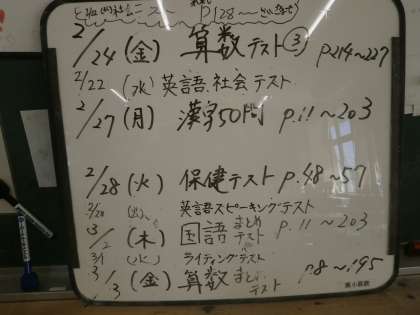 2/24 (金) 算数テスト③ p.214〜227
2/22 (水) 英語、社会テスト
2/27 (月) 漢字50問 p.11〜203
2/28 (火) 保健テスト p.48〜57
2/28 (火) 英語スピーキングテスト
3/2 (木) 国語まとめテスト p.11〜203
3/1 (水) ライティングテスト
3/3 (金) 算数まとめテスト p8〜195